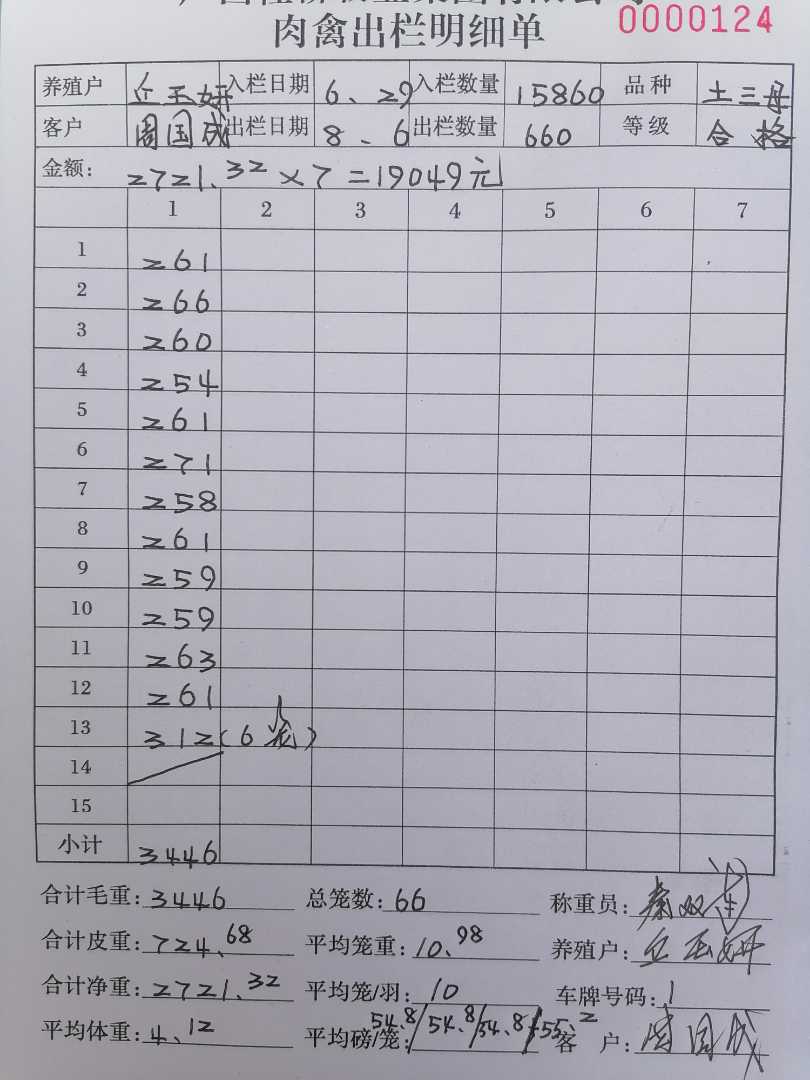 0000124
肉禽出栏明细单
养殖户 丘玉妍 入栏日期 6、29 入栏数量 15860 品种 土三母
客户 周国成 出栏日期 8、6 出栏数量 660 等级 合格
金额: 2721.32×7=19049元
1 2 3 4 5 6 7
1 261
2 266
3 260
4 254
5 261
6 271
7 258
8 261
9 259
10 259
11 263
12 261
13 312(6笼)
14
15
小计 3446
合计毛重: 3446 总笼数: 66 称重员: 秦双
合计皮重: 724.68 平均笼重: 10.98 养殖户: 丘玉妍
合计净重: 2721.32 平均笼/羽: 10 车牌号码:
平均体重: 4.12 平均磅/笼: 54.8/54.8/54.8/55.2 客户: 周国成